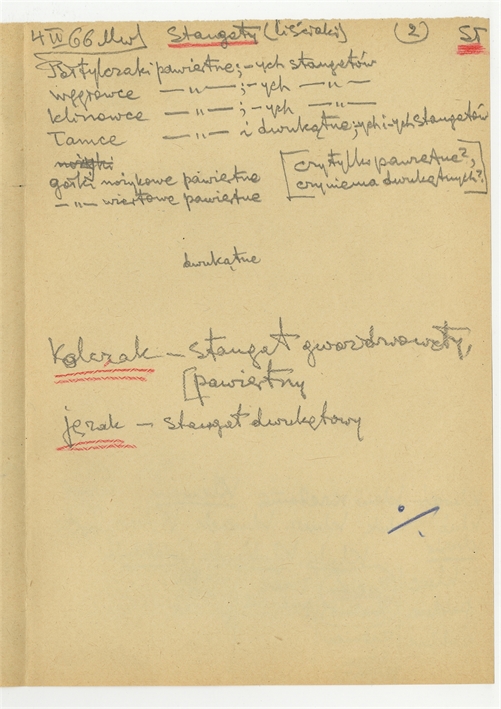 4 IV 66 Mwl Stangety (liściaki) (2) ST
Botylczaki pawiętne; -ych stangetów
węgrowce —„— ; -ych —„—
klinowce —„— ; -ych —„—
Tamce —„— i dwukątne; ych i -ych stangetów
gorki nożykowe pawiętne
—„— wiertowe pawiętne
[czy tylko pawiętne?,
czy niema dwukątnych?]
dwukątne
Kolczak — stanget gwoździowaty,
[pawiętny
język — stanget dwukątowy